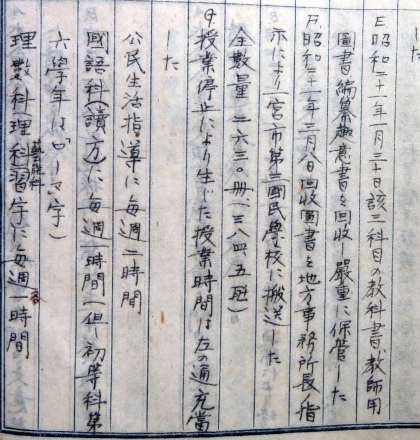 した
E 昭和二十一年一月三十日該三科目の教科書、教師用
図書編纂趣意書を回収し嚴重に保管した
F 昭和二十一年三月八日回收圖書を地方事務所長ノ指
示により一宮市第三國民學校に搬送した
全数量 二六三〇冊(三八四、五瓩)
G 授業停止により生じた授業時間は左の通り充當
した
公民生活指導に毎週一時間
國語科(讀方)に毎週一時間(但し初等科第
六學年はローマ字)
理数科理科藝能科習字に毎週各一時間